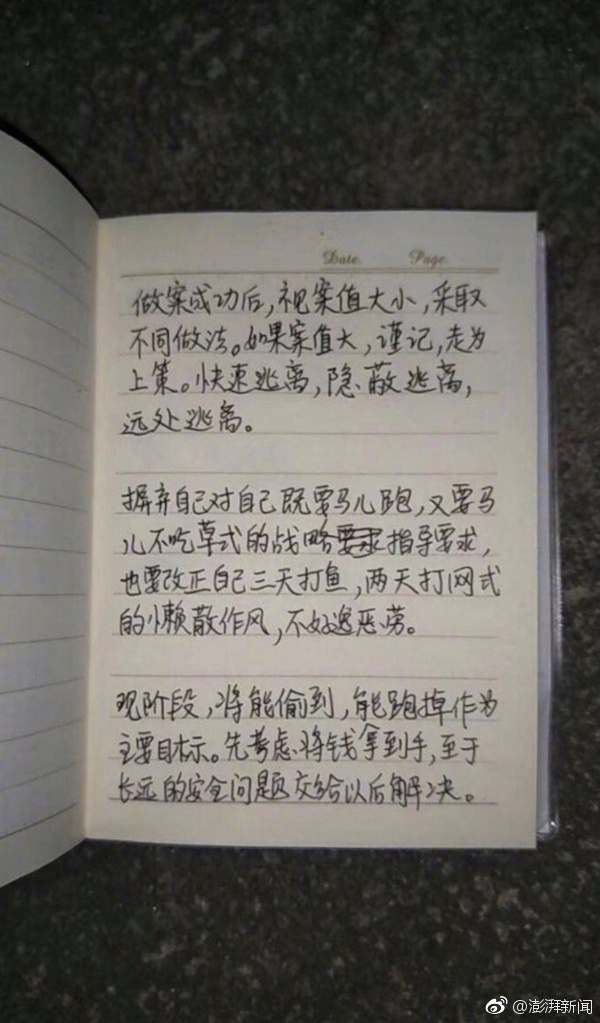 Date Page
做案成功后,视案值大小,采取
不同做法。如果案值大,谨记,走为
上策。快速逃离,隐蔽逃离,
远处逃离。
摒弃自己对自己既要马儿跑,又要马
儿不吃草式的战略要求指导要求,
也要改正自己三天打鱼,两天打网式
的懒散作风,不好逸恶劳。
现阶段,将能偷到,能跑掉作为
主要目标。先考虑将钱拿到手,至于
长远的安全问题交给以后解决。
@澎湃新闻